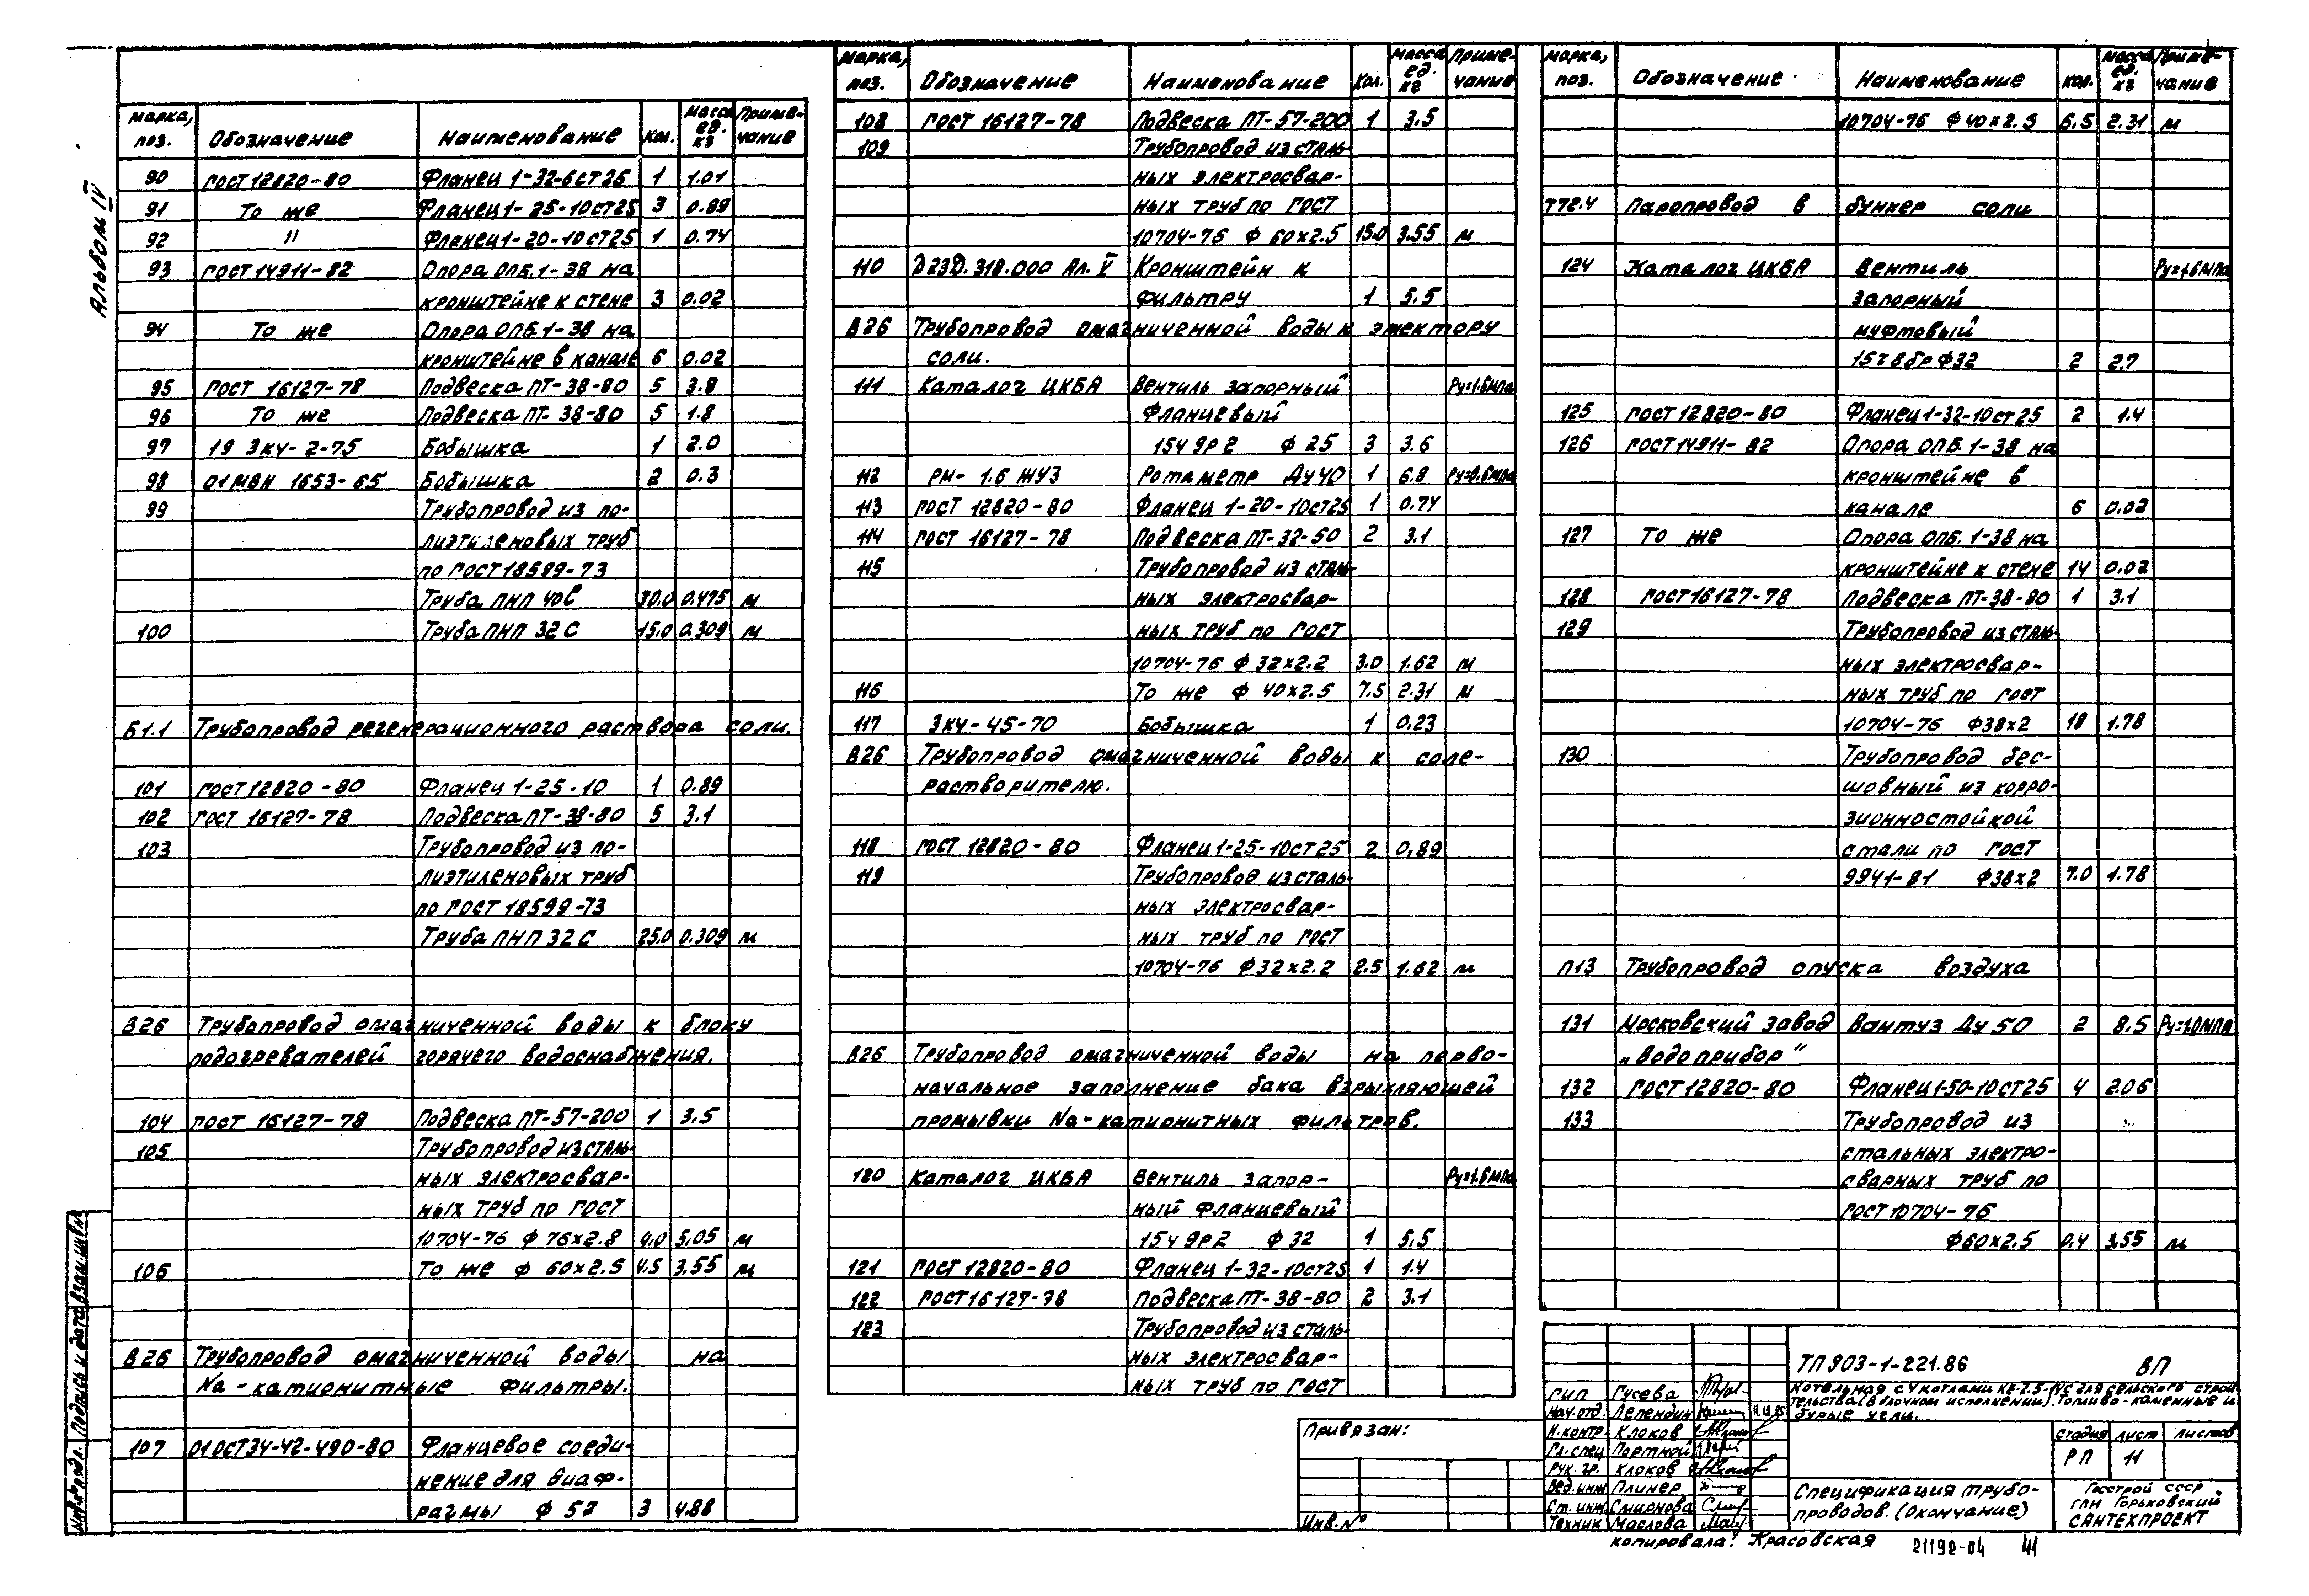 Альбом IV
Марка, поз. Обозначение Наименование Кол. Масса ед. кг Примечание
90 ГОСТ 12820-80 Фланец 1-32-6 ст 25 1 1.01
91 То же Фланец 1-25-10 ст 25 3 0.89
92 " Фланец 1-20-10 ст 25 1 0.74
93 ГОСТ 14911-82 Опора ОПБ.1-38 на
кронштейне к стене 3 0.02
94 То же Опора ОПБ.1-38 на
кронштейне в канале 6 0.02
95 ГОСТ 16127-78 Подвеска ПТ-38-80 5 3.8
96 То же Подвеска ПТ-38-80 5 1.8
97 19 ЗК4-2-75 Бобышка 1 2.0
98 01 МВН 1653-65 Бобышка 2 0.3
99 Трубопровод из по-
лиэтиленовых труб
по ГОСТ 18599-73
Труба ПНП 40С 30.0 0.475 м
100 Труба ПНП 32С 15.0 0.309 м
Б1.1 Трубопровод регенерационного раствора соли.
101 ГОСТ 12820-80 Фланец 1-25-10 1 0.89
102 ГОСТ 16127-78 Подвеска ПТ-38-80 5 3.1
103 Трубопровод из по-
лиэтиленовых труб
по ГОСТ 18599-73
Труба ПНП 32С 25.0 0.309 м
В26 Трубопровод омагниченной воды к блоку
подогревателей горячего водоснабжения.
104 ГОСТ 16127-78 Подвеска ПТ-57-200 1 3.5
105 Трубопровод из сталь-
ных электросвар-
ных труб по ГОСТ
10704-76 ф 76×2.8 4.0 5.05 м
106 То же ф 60×2.5 4.5 3.55 м
В26 Трубопровод омагниченной воды на
Na-катионитные фильтры.
107 01 ОСТ 34-42-490-80 Фланцевое соеди-
нение для диаф-
рагмы ф 57 3 4.88
Марка, поз. Обозначение Наименование Кол. Масса ед. кг Примечание
108 ГОСТ 16127-78 Подвеска ПТ-57-200 1 3.5
109 Трубопровод из сталь-
ных электросвар-
ных труб по ГОСТ
10704-76 ф 60×2.5 15.0 3.55 м
110 Д23Д.318.000 Ал. V Кронштейн к
фильтру 1 5.5
В26 Трубопровод омагниченной воды к эжектору
соли.
111 Каталог ЦКБА Вентиль запорный Ру=1.6 МПа
фланцевый
15ч 9р2 ф 25 3 3.6
112 РМ-1.6 ЖУЗ Ротаметр Ду40 1 6.8 Ру=0.6 МПа
113 ГОСТ 12820-80 Фланец 1-20-10 ст 25 1 0.74
114 ГОСТ 16127-78 Подвеска ПТ-32-50 2 3.1
115 Трубопровод из сталь-
ных электросвар-
ных труб по ГОСТ
10704-76 ф 32×2.2 3.0 1.62 м
116 То же ф 40×2.5 7.5 2.31 м
117 ЗК4-45-70 Бобышка 1 0.23
В26 Трубопровод омагниченной воды к соле-
растворителю.
118 ГОСТ 12820-80 Фланец 1-25-10 ст 25 2 0,89
119 Трубопровод из сталь-
ных электросвар-
ных труб по ГОСТ
10704-76 ф 32×2.2 2.5 1.62 м
В26 Трубопровод омагниченной воды на перво-
начальное заполнение бака взрыхляющей
промывки Na-катионитных фильтров.
120 Каталог ЦКБА Вентиль запор- Ру=1.6 МПа
ный фланцевый
15ч 9р2 ф 32 1 5.5
121 ГОСТ 12820-80 Фланец 1-32-10 ст 25 1 1.4
122 ГОСТ 16127-78 Подвеска ПТ-38-80 2 3.1
123 Трубопровод из сталь-
ных электросвар-
ных труб по ГОСТ
Марка, поз. Обозначение Наименование Кол. Масса ед. кг Примечание
10704-76 ф 40×2.5 6.5 2.31 м
Т72.4 Паропровод в бункер соли
124 Каталог ЦКБА Вентиль Ру=1.6 МПа
запорный
муфтовый
15ч 8бр ф32 2 2,7
125 ГОСТ 12820-80 Фланец 1-32-10 ст 25 2 1.4
126 ГОСТ 14911-82 Опора ОПБ.1-38 на
кронштейне в
канале 6 0.02
127 То же Опора ОПБ.1-38 на
кронштейне к стене 14 0.02
128 ГОСТ 16127-78 Подвеска ПТ-38-80 1 3.1
129 Трубопровод из сталь-
ных электросвар-
ных труб по ГОСТ
10704-76 ф38×2 18 1.78
130 Трубопровод бес-
шовный из корро-
зионностойкой
стали по ГОСТ
9941-81 ф38×2 7.0 1.78
П13 Трубопровод опуска воздуха
131 Московский завод Вантуз Ду 50 2 8.5 Ру=1.0 МПа
„Водоприбор"
132 ГОСТ 12820-80 Фланец 1-50-10 ст 25 4 2.06
133 Трубопровод из
стальных электро-
сварных труб по
ГОСТ 10704-76
ф60×2.5 0.4 3.55 м
Привязан:
Инв. №
ТП 903-1-221.86 ВП
Котельная с 4 котлами КЕ-2.5-14С для сельского строи-
тельства (в блочном исполнении). Топливо-каменные и
бурые угли.
ГИП Гусева
Нач. отд. Лепендин
Н. контр. Клоков
Гл. спец. Портной
Рук. гр. Клоков
Вед. инж. Плинер
Ст. инж. Смирнова
Техник Маслова
Стадия Лист Листов
РП 11
Спецификация трубо-
проводов. (Окончание)
Госстрой СССР
ГПИ Горьковский
САНТЕХПРОЕКТ
Копировала: Красовская 21192-04 41
Взам. инв. №
Подпись и дата
Инв. № подл.